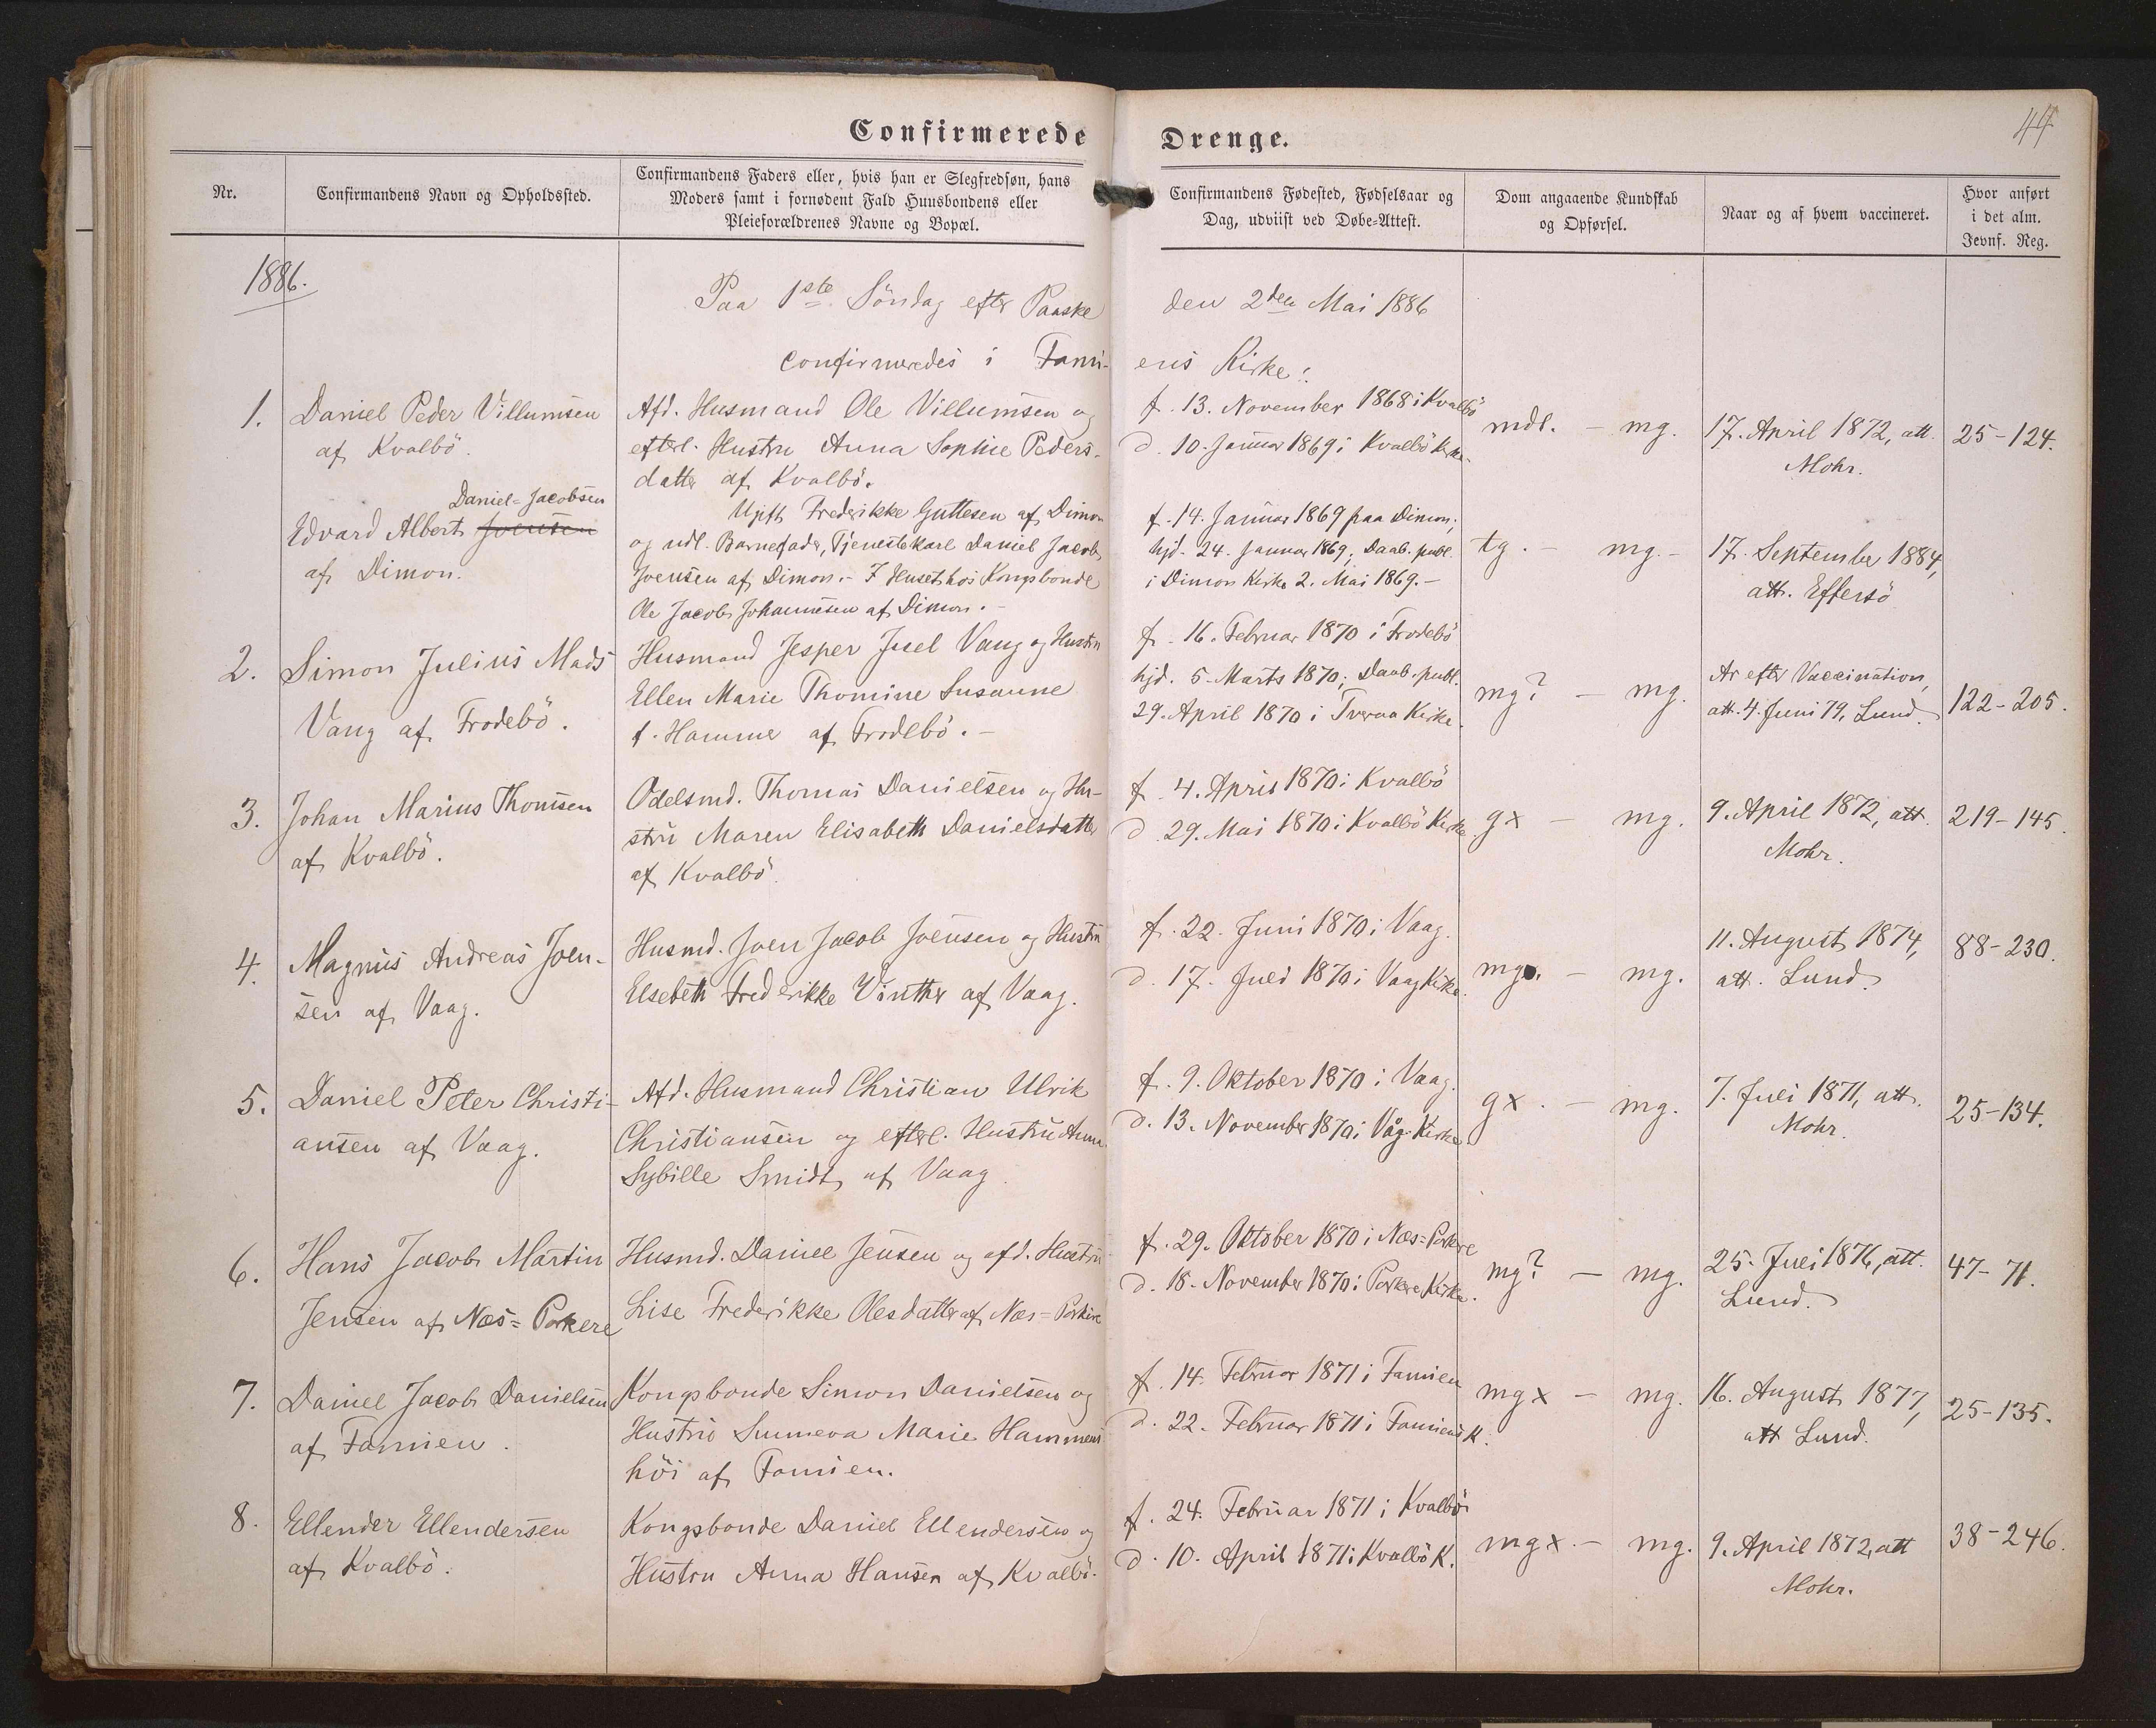 44
Confirmerede Drenge.
Nr.
Confirmandens Navn og Opholdssted.
Confirmandens Faders eller, hvis han er Slegfredsøn, hans
Moders samt i fornødent Fald Huusbondens eller
Pleieforældrenes Navne og Bopæl.
Confirmandens Fødested, Fødselsaar og
Dag, udviist ved Døbe-Attest.
Dom angaaende Kundskab
og Opførsel.
Naar og af hvem vaccineret.
Hvor anført
i det alm.
Jevnf. Reg.
1886.
Paa 1ste Söndag efter Paaske den 2den Mai 1886
confirmeredes i Fami- ens Kirke:
1.
Daniel Peder Villumsen
af Kvalbö.
Afd. Husmand Ole Villumsen og
efterl. Hustru Anna Sophie Peders-
datter af Kvalbö.
f. 13. November 1868 i Kvalbö
d. 10. Januar 1869 i Kvalbö Kirke.
mdl. - mg.
17. April 1872, att.
Mohr.
25-124.
Daniel=Jacobsen
Edvard Albert Joensen
af Dimon.
Ugift Frederikke Guttesen af Dimon
og udl. Barnefader, Tjenestekarl Daniel Jacob
Joensen af Dimon. - I Huset hos Kongsbonde
Ole Jacob Johannesen af Dimon. -
f. 14. Januar 1869 paa Dimon;
hjd. 24. Januar 1869; Daab. publ.
i Dimon Kirke 2. Mai 1869. -
tg. - mg. -
17. September 1884,
att. Effersö
2.
Simon Julius Mads
Vang af Frodebö.
Husmand Jesper Juel Vang og Hustru
Ellen Marie Thomine Susanne
f. Hammer af Frodebö. -
f. 16. Februar 1870 i Frodebö
hjd. 5. Marts 1870; Daab. publ.
29. April 1870 i Tveraa Kirke.
mg? - mg.
Ar efter Vaccination,
att. 4. Juni 79, Lund.
122-205.
3.
Johan Marius Thomsen
af Kvalbö.
Odelsmd. Thomas Danielsen og Hu-
stru Maren Elisabeth Danielsdatter
af Kvalbö.
f. 4. April 1870 i Kvalbö
d. 29. Mai 1870 i Kvalbö Kirke
gx - mg.
9. April 1872, att.
Mohr.
219-145.
4.
Magnus Andreas Joen-
sen af Vaag.
Husmd. Joen Jacob Joensen og Hustru
Elsebeth Frederikke Vinther af Vaag.
f. 22. Juni 1870 i Vaag.
d. 17. Juli 1870 i Vaag Kirke.
mg. - mg.
11. August 1874,
att. Lund.
88-230.
5.
Daniel Peter Christi-
ansen af Vaag.
Afd. Husmand Christian Ulrik
Christiansen og efterl. Hustru Anna
Sybille Smidt af Vaag.
f. 9. Oktober 1870 i Vaag.
d. 13. November 1870 i Våg Kirke
gx. - mg.
7. Juli 1871, att.
Mohr.
25-134.
6.
Hans Jacob Martin
Jensen af Næs=Porkere
Husmd. Daniel Jensen og afd. Hustru
Lise Frederikke Olesdatter af Næs=Porkere
f. 29. Oktober 1870 i Næs=Porkere
d. 18. November 1870 i Porkere Kirke.
mg? - mg.
25. Juli 1876, att.
Lund.
47-71.
7.
Daniel Jacob Danielsen
af Famien.
Kongsbonde Simon Danielsen og
Hustru Sunneva Marie Hammers
höi af Famien.
f. 14. Februar 1871 i Famien
d. 22. Februar 1871 i Famiens K.
mgx - mg.
16. August 1877,
att Lund.
25-135.
8.
Ellender Ellendersen
af Kvalbö.
Kongsbonde Daniel Ellendersen og
Hustru Anna Hansen af Kvalbö.
f. 24. Februar 1871 i Kvalbö
d. 10. April 1871 i Kvalbö K.
mgx. - mg.
9. April 1872, att
Mohr.
38-246.